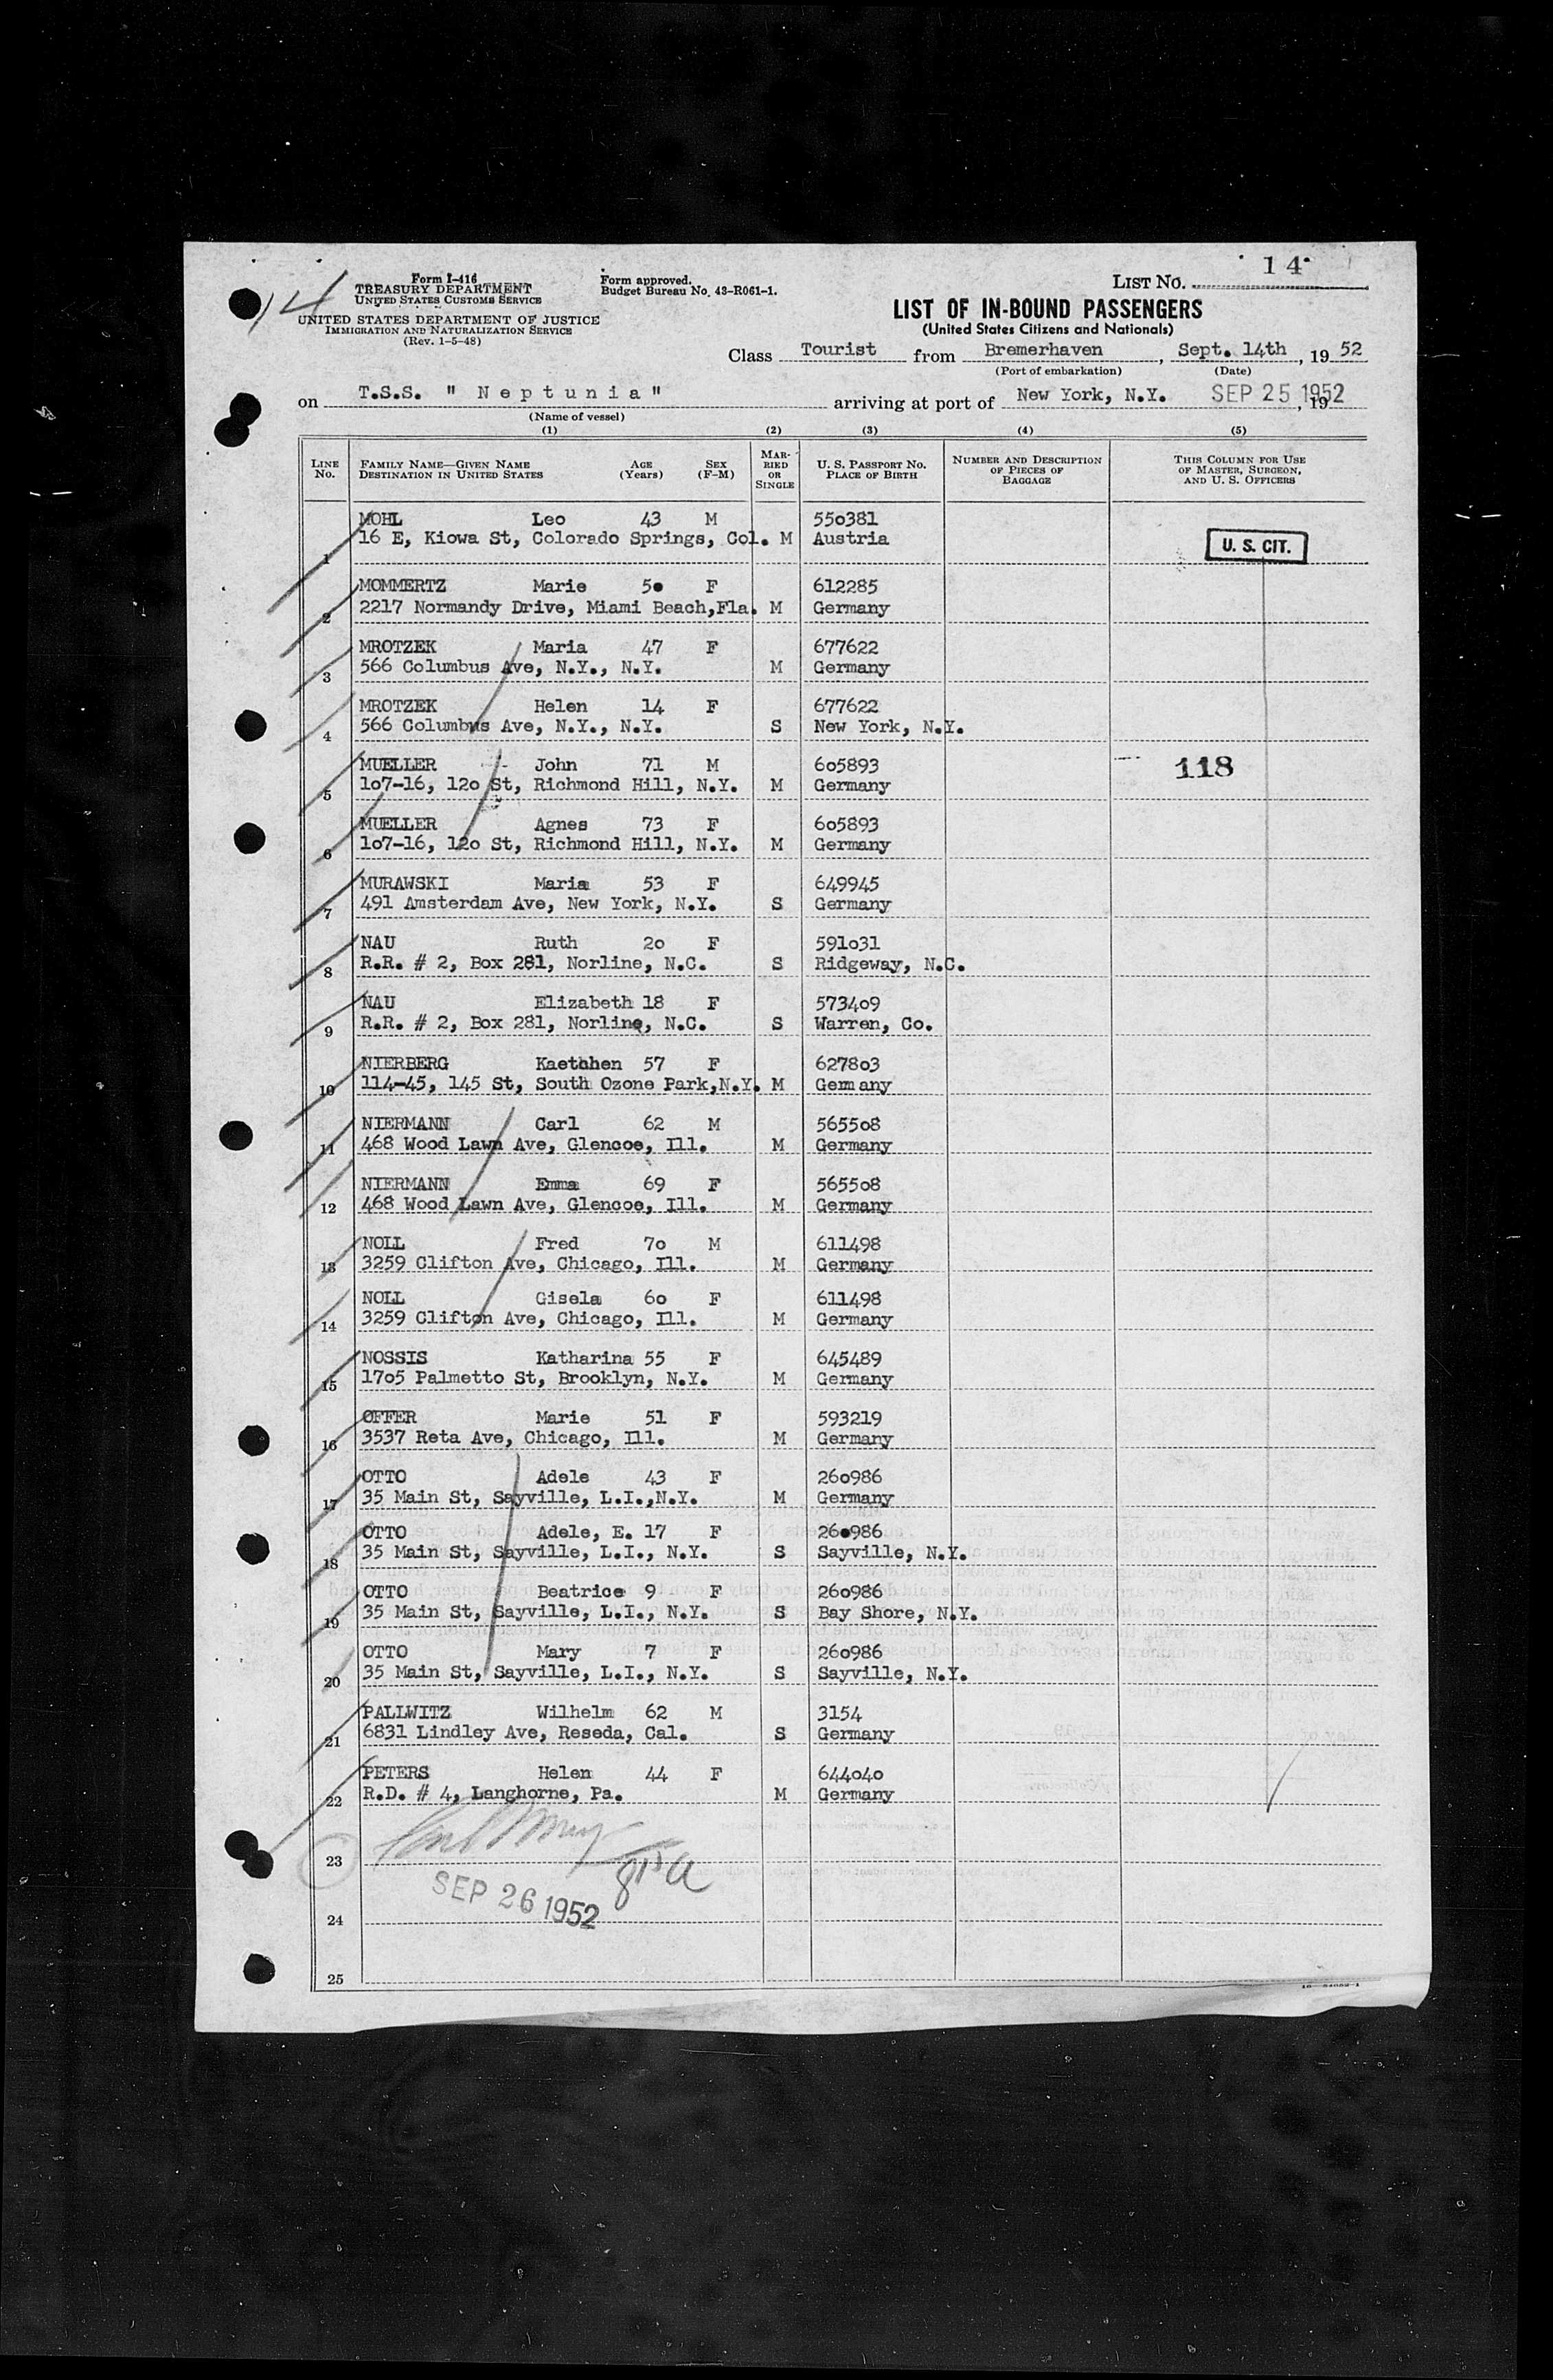 14
Form I-416
TREASURY DEPARTMENT
UNITED STATES CUSTOMS SERVICE
UNITED STATES DEPARTMENT OF JUSTICE
IMMIGRATION AND NATURALIZATION SERVICE
(Rev. 1-5-48)
Form approved.
Budget Bureau No. 43-R061-1.
LIST NO. 14
LIST OF IN-BOUND PASSENGERS
(United States Citizens and Nationals)
Class Tourist from Bremerhaven, Sept. 14th, 19 52
(Port of embarkation) (Date)
on T.S.S. " N e p t u n i a " arriving at port of New York, N.Y. SEP 25 1952, 19
(Name of vessel)
(1) (2) (3) (4) (5)
LINE NO. FAMILY NAME—GIVEN NAME DESTINATION IN UNITED STATES AGE (Years) SEX (F-M) MARRIED OR SINGLE U. S. PASSPORT NO. PLACE OF BIRTH NUMBER AND DESCRIPTION OF PIECES OF BAGGAGE THIS COLUMN FOR USE OF MASTER, SURGEON, AND U. S. OFFICERS
MOHL Leo 43 M 550381
1 16 E, Kiowa St, Colorado Springs, Col. M Austria U. S. CIT.
MOMMERTZ Marie 50 F 612285
2 2217 Normandy Drive, Miami Beach,Fla. M Germany
MROTZEK Maria 47 F 677622
3 566 Columbus Ave, N.Y., N.Y. M Germany
MROTZEK Helen 14 F 677622
4 566 Columbus Ave, N.Y., N.Y. S New York, N.Y.
MUELLER John 71 M 605893 118
5 107-16, 120 St, Richmond Hill, N.Y. M Germany
MUELLER Agnes 73 F 605893
6 107-16, 120 St, Richmond Hill, N.Y. M Germany
MURAWSKI Maria 53 F 649945
7 491 Amsterdam Ave, New York, N.Y. S Germany
NAU Ruth 20 F 591031
8 R.R. # 2, Box 281, Norline, N.C. S Ridgeway, N.C.
NAU Elizabeth 18 F 573409
9 R.R. # 2, Box 281, Norline, N.C. S Warren, Co.
NIERBERG Kaethhen 57 F 627803
10 114-45, 145 St, South Ozone Park,N.Y. M Gemany
NIERMANN Carl 62 M 565508
11 468 Wood Lawn Ave, Glencoe, Ill. M Germany
NIERMANN Emma 69 F 565508
12 468 Wood Lawn Ave, Glencoe, Ill. M Germany
NOLL Fred 70 M 611498
13 3259 Clifton Ave, Chicago, Ill. M Germany
NOLL Gisela 60 F 611498
14 3259 Clifton Ave, Chicago, Ill. M Germany
NOSSIS Katharina 55 F 645489
15 1705 Palmetto St, Brooklyn, N.Y. M Germany
OFFER Marie 51 F 593219
16 3537 Reta Ave, Chicago, Ill. M Germany
OTTO Adele 43 F 260986
17 35 Main St, Sayville, L.I.,N.Y. M Germany
OTTO Adele, E. 17 F 260986
18 35 Main St, Sayville, L.I., N.Y. S Sayville, N.Y.
OTTO Beatrice 9 F 260986
19 35 Main St, Sayville, L.I., N.Y. S Bay Shore, N.Y.
OTTO Mary 7 F 260986
20 35 Main St, Sayville, L.I., N.Y. S Sayville, N.Y.
PALLWITZ Wilhelm 62 M 3154
21 6831 Lindley Ave, Reseda, Cal. S Germany
PETERS Helen 44 F 644040
22 R.D. # 4, Langhorne, Pa. M Germany
23
SEP 26 1952
24
25